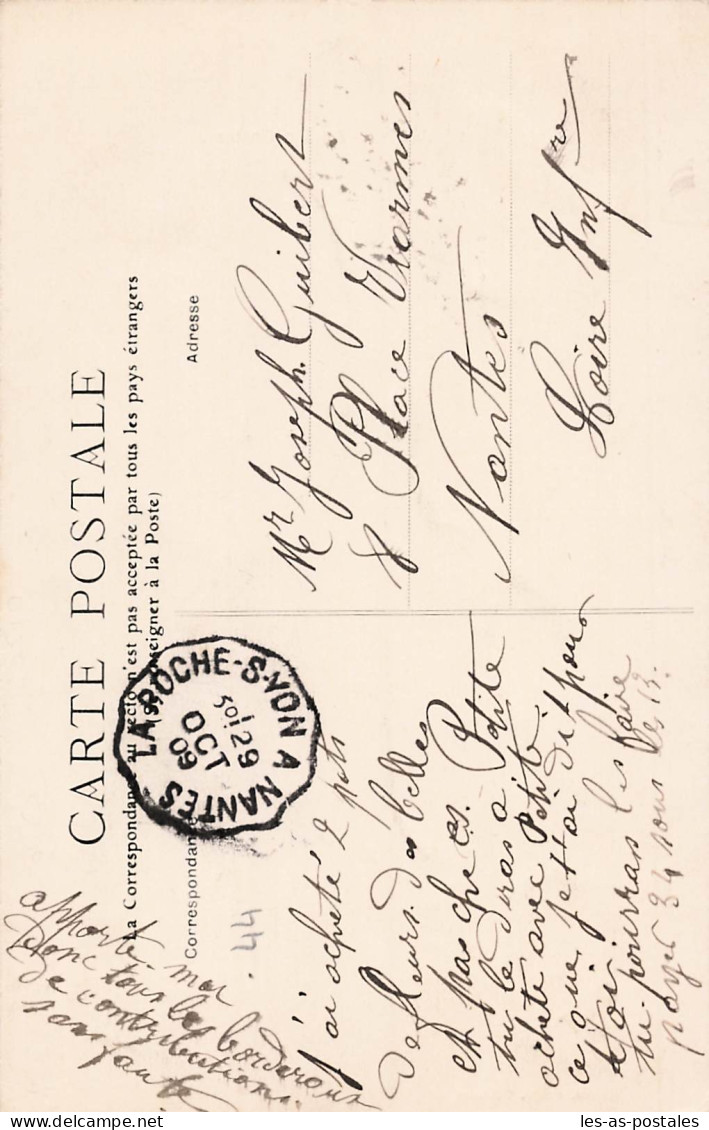 CARTE POSTALE
La Correspondance au recto n'est pas acceptée par tous les pays étrangers
(Se renseigner à la Poste)
Correspondance
Adresse
LA ROCHE-S-YON A NANTES
29
OCT
09
44
apporte moi
donc tous les bordereaux
de contributions
sans faute
j'ai acheté 2 pots
de fleurs des belles
et pas chères. Petite
tu le diras a
acheté avec Petite
ce que je t'ai dit pour
toi tu pourras les faire
payer 34 sous les 13.
Mr Joseph Guibert
8 Place Viarmes
Nantes
Loire Infre
les-as-postales
delcampe.net